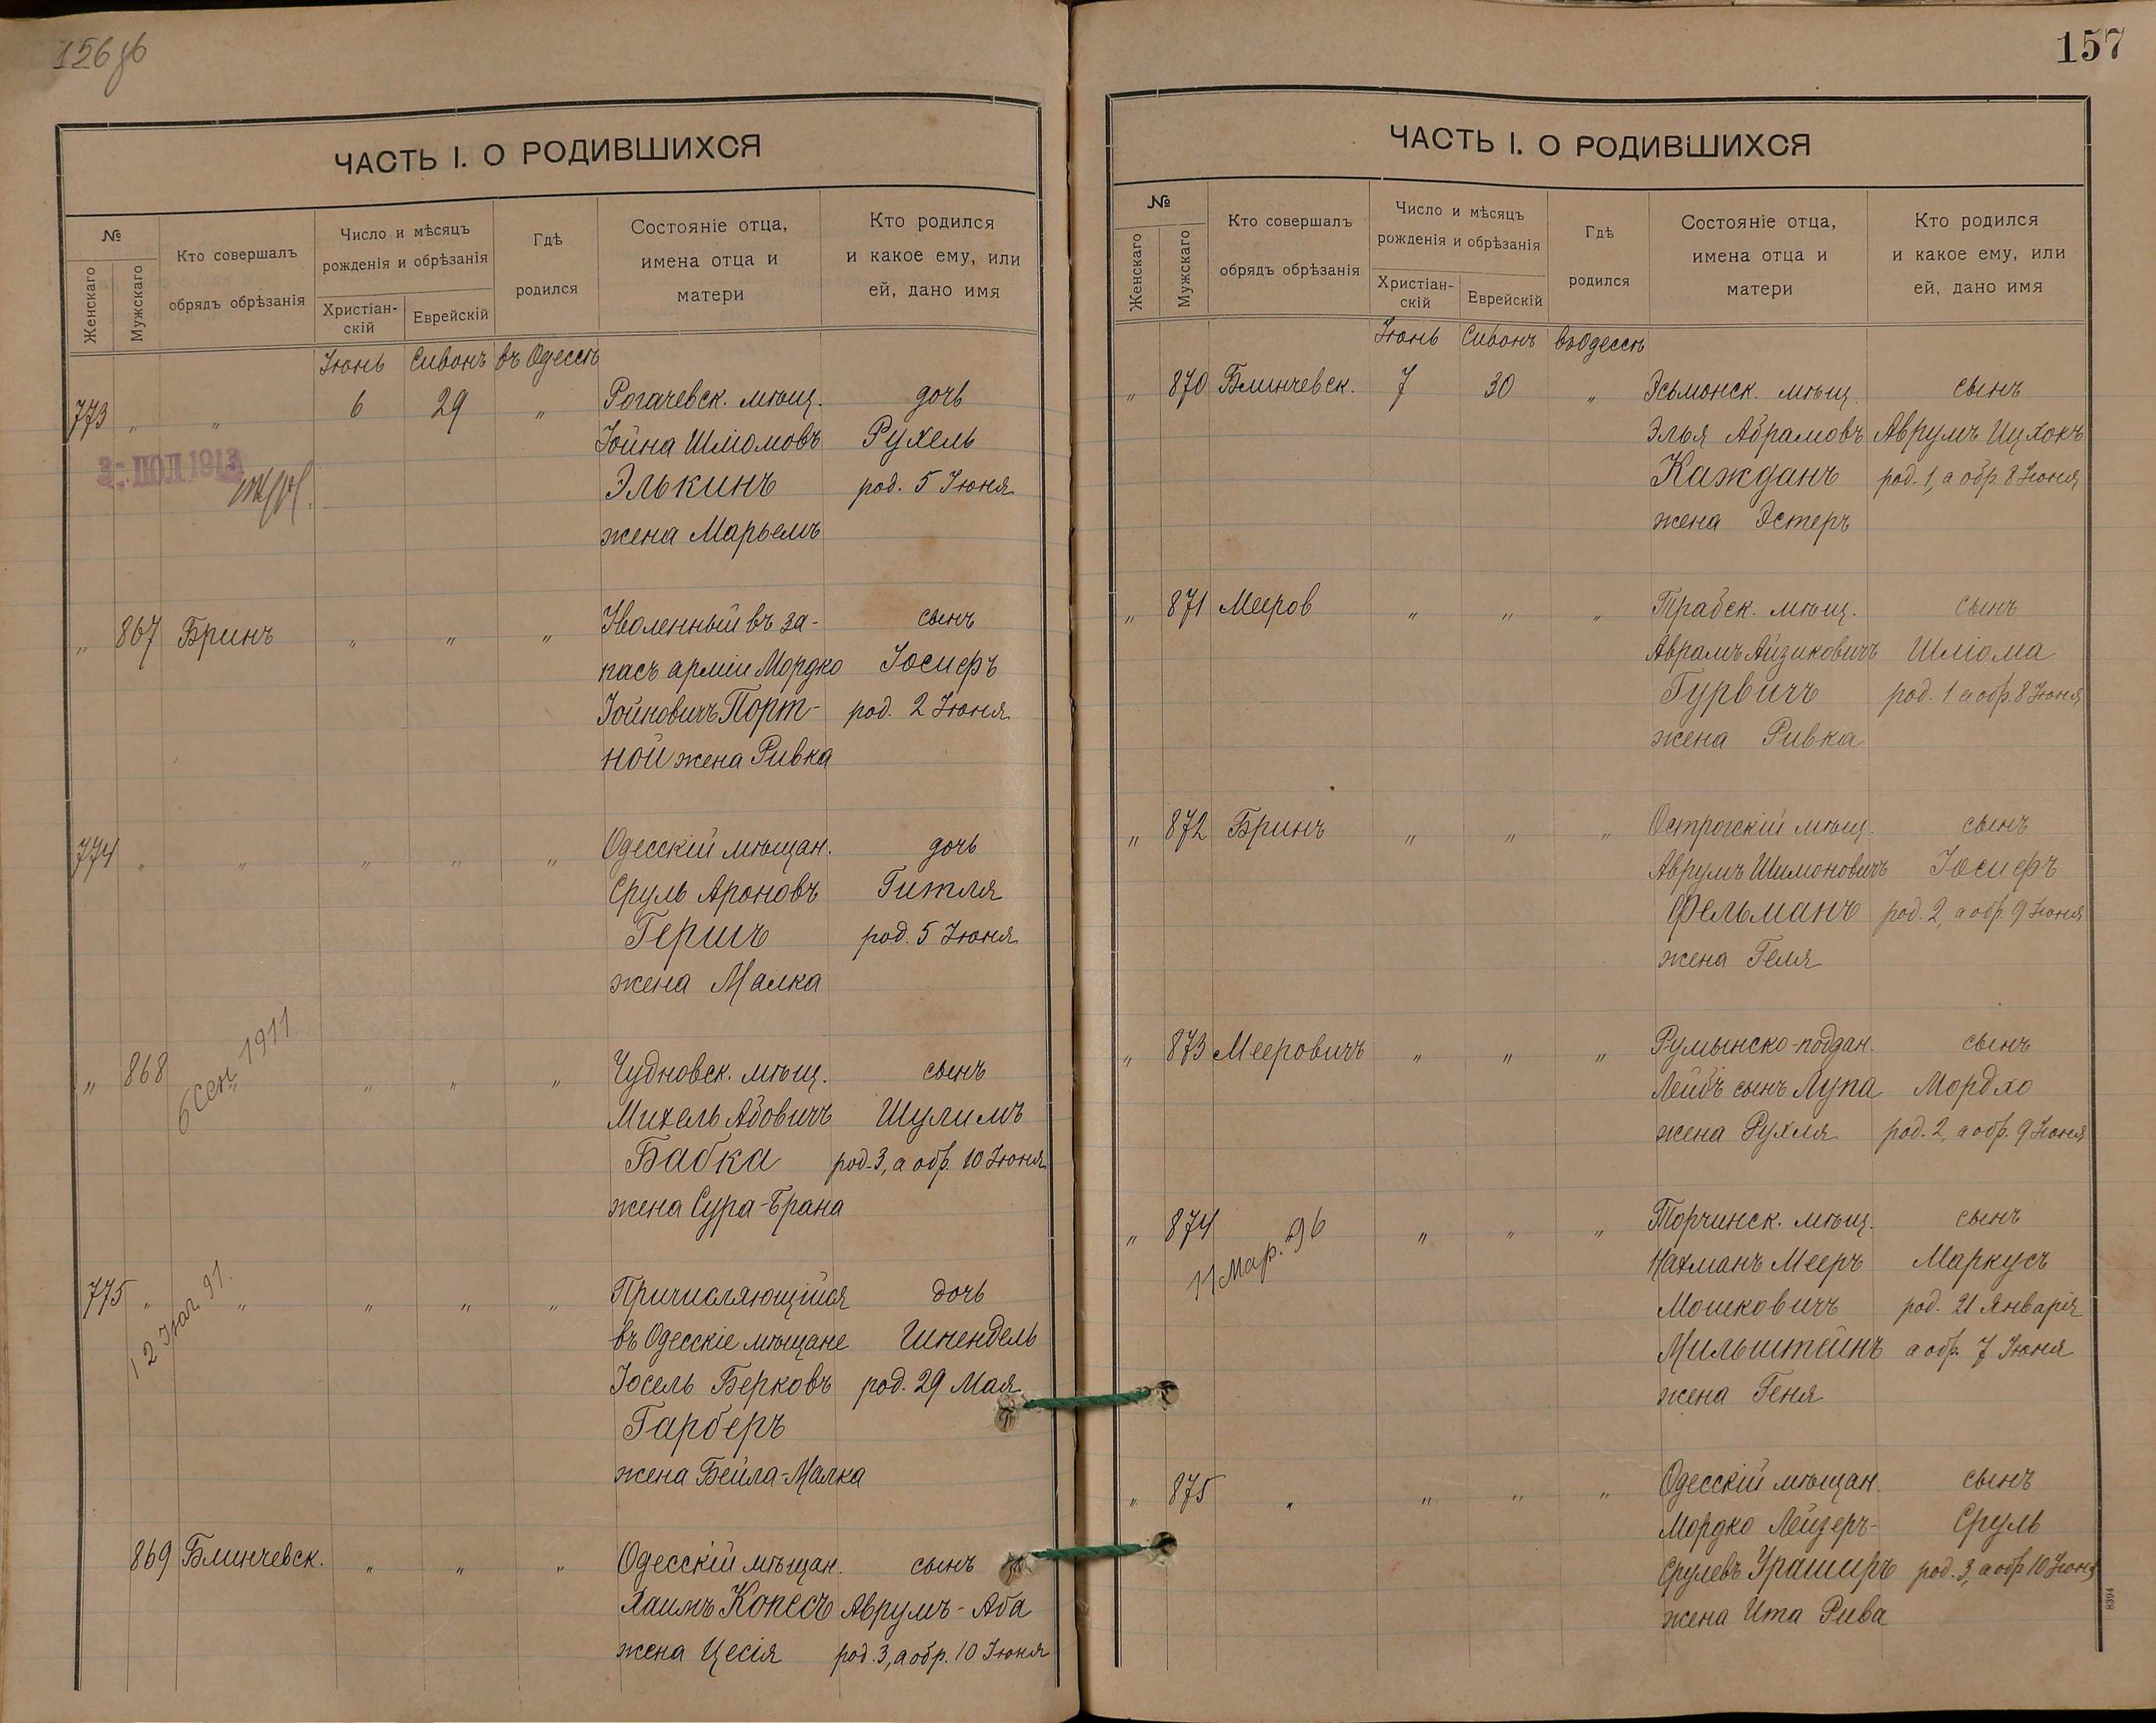 156 об
ЧАСТЬ I. О РОДИВШИХСЯ
№
Женскаго
Мужскаго
Кто совершалъ
обрядъ обрѣзанія
Число и мѣсяцъ
рожденія и обрѣзанія
Христіан-
скій
Еврейскій
Гдѣ
родился
Состояніе отца,
имена отца и
матери
Кто родился
и какое ему, или
ей, дано имя
Іюнь Сивонъ въ Одессѣ
773 „ „ 6 29 „ Рогачевск. мѣщ. дочь
Іойна Шліомовъ Рухель
3 - ІЮЛ 1913
Элькинъ род. 5 Іюня
жена Марьемъ
„ 867 Бринъ „ „ „ Уволенный въ за- сынъ
пасъ арміи Мордко Іосифъ
Іойновичъ Порт- род. 2 Іюня
ной жена Ривка
774 „ „ „ „ „ Одесскій мѣщан. дочь
Сруль Ароновъ Гитля
Гершъ род. 5 Іюня
жена Малка
6 Сен 1911
„ 868 „ „ „ „ Чудновск. мѣщ. сынъ
Михель Абовичъ Шулимъ
Бабка род. 3, а обр. 10 Іюня
жена Сура-Брана
12 91.
775 „ „ „ „ „ Причисляющійся дочь
въ Одесскіе мѣщане Шнендель
Іосель Берковъ род. 29 Мая
Гарберъ
жена Бейла-Малка
869 Блинчевск. „ „ „ Одесскій мѣщан. сынъ
Хаимъ Копесъ Аврумъ-Аба
жена Цесія род. 3, а обр. 10 Іюня
157
ЧАСТЬ I. О РОДИВШИХСЯ
№
Женскаго
Мужскаго
Кто совершалъ
обрядъ обрѣзанія
Число и мѣсяцъ
рожденія и обрѣзанія
Христіан-
скій
Еврейскій
Гдѣ
родился
Состояніе отца,
имена отца и
матери
Кто родился
и какое ему, или
ей, дано имя
Іюнь Сивонъ въ Одессѣ
„ 870 Блинчевск. 7 30 „ Эсьмонск. мѣщ. сынъ
Элья Абрамовъ Аврумъ Ицхокъ
Кажданъ род. 1, а обр. 8 Іюня
жена Эстеръ
„ 871 Мееров „ „ „ Трабск. мѣщ. сынъ
Аврамъ Айзиковичъ Шліома
Гурвичъ род. 1 а обр. 8 Іюня
жена Ривка
„ 872 Бринъ „ „ „ Острогскій мѣщ. сынъ
Аврумъ Шимоновичъ Іосифъ
Фельманъ род. 2, а обр. 9 Іюня
жена Геля
„ 873 Мееровичъ „ „ „ Румынско-поддан. сынъ
Лейбъ сынъ Лупа Мордхо
жена Рухля род. 2, а обр. 9 Іюня
„ 874 „ „ „ Торчинск. мѣщ. сынъ
11 Мар. 96
Нахманъ Мееръ Маркусъ
Мошковичъ род. 21 Января
Мильштейнъ а обр. 7 Іюня
жена Геня
„ 875 „ „ „ „ Одесскій мѣщан. сынъ
Мордко Лейзеръ- Сруль
Срулевъ Ураширъ род. 3, а обр 10 Іюня
жена Ита Рива
8394